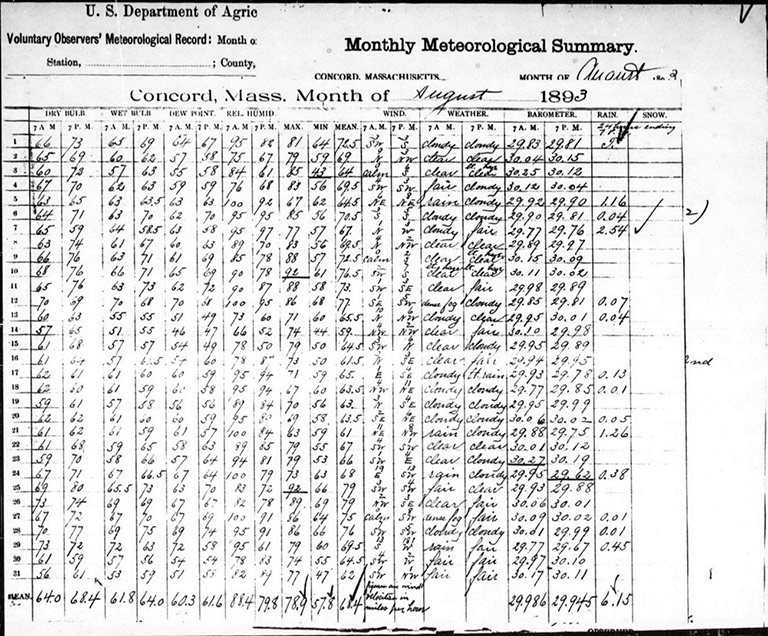 U. S. Department of Agric
Voluntary Observers' Meteorological Record: Month o
Station, ; County,
Monthly Meteorological Summary.
CONCORD, MASSACHUSETTS. MONTH OF August 1893
Concord, Mass. Month of August 1893
DRY BULB WET BULB DEW POINT. REL. HUMID. WIND. WEATHER. BAROMETER. RAIN. SNOW.
7 A. M. 7 P. M. 7 A. M. 7 P. M. 7 A. M. 7 P. M. 7 A. M. 7 P. M. MAX. MIN MEAN. 7 A. M. 7 P. M. 7 A. M. 7 P. M. 7 A. M. 7 P. M. ending
1 66 73 65 69 64 67 95 82 81 64 72.5 SW S cloudy cloudy 29.83 29.81 T.
2 65 69 60 62 57 58 75 67 79 59 69 N NW clear clear 30.04 30.15
3 60 72 57 63 55 58 84 61 85 43 64 calm S clear clear 30.25 30.12
4 67 70 62 63 59 59 76 68 83 56 69.5 SW S fair cloudy 30.12 30.04
5 63 65 63 63.5 63 63 100 92 67 62 64.5 NE NE rain cloudy 29.92 29.90 1.16
6 64 71 63 70 62 70 95 95 85 56 70.5 S S cloudy cloudy 29.90 29.81 0.04
7 65 59 64 58.5 63 58 95 97 77 57 67 N W cloudy fair 29.77 29.76 2.54
8 63 74 61 67 60 63 89 70 83 56 69.5 N NW clear clear 29.89 29.97
9 66 76 63 71 61 69 85 78 88 57 72.5 calm S clear clear 30.15 30.09
10 68 76 66 71 65 69 90 78 92 61 76.5 SW S clear 30.11 30.02
11 65 76 63 73 62 72 90 87 88 58 73 SW SE clear fair 29.98 29.89
12 70 69 70 68 70 68 100 95 86 68 77 SE SW dense fog cloudy 29.85 29.81 0.07
13 60 63 55 55 51 49 73 60 71 60 65.5 N NW cloudy clear 29.95 30.01 0.04
14 57 65 51 55 46 47 66 52 74 44 59 NW NW clear fair 30.10 29.98
15 61 68 57 57 54 49 78 50 79 50 64.5 SW N clear cloudy 29.95 29.89
16 61 64 57 61.5 54 60 78 73 50 61.5 N SE clear fair 29.94 29.95
17 62 61 61 60 60 59 95 94 71 59 65 E SE cloudy lt. rain 29.93 29.78 0.13
18 62 60 61 59 60 58 95 94 67 60 63.5 NW NW cloudy cloudy 29.77 29.85 0.01
19 59 61 57 58 56 56 89 84 70 56 63 N SE cloudy cloudy 29.95 29.99
20 62 62 61 60 60 59 95 69 58 63.5 SE NE cloudy cloudy 30.06 30.02 0.05
21 61 62 61 59 61 57 100 84 63 59 61 NE NW rain cloudy 29.88 29.75 1.26
22 61 68 59 65 58 63 89 65 79 55 67 SW SW clear clear 30.01 30.12
23 59 70 58 66 57 64 94 81 79 53 66 SW E clear cloudy 30.27 30.19
24 67 71 67 66.5 67 64 100 79 73 63 68 E SW rain cloudy 29.95 29.62 0.38
25 69 80 65.5 73 63 70 83 72 92 66 79 SW SW fair clear 29.93 29.88
26 73 74 69 69 67 67 82 78 89 69 79 NW SE clear fair 30.06 30.01
27 67 72 67 70 67 69 100 91 86 64 75 calm SW dense fog fair 30.09 30.02 0.01
28 70 77 69 75 69 74 95 91 86 66 76 SW S cloudy cloudy 30.01 29.99 0.01
29 73 72 72 63 72 58 95 61 79 60 69.5 S W rain fair 29.77 29.67 0.45
30 61 59 57 56 54 54 78 83 74 55 64.5 SW W fair fair 29.97 30.10
31 56 61 53 59 51 58 82 77 47 62 SW NW fair fair 30.17 30.11
MEAN. 64.0 68.4 61.8 64.0 60.3 61.6 88.4 79.8 78.9 57.8 68.4 figures are wind velocities in miles per hour 29.986 29.945 6.15